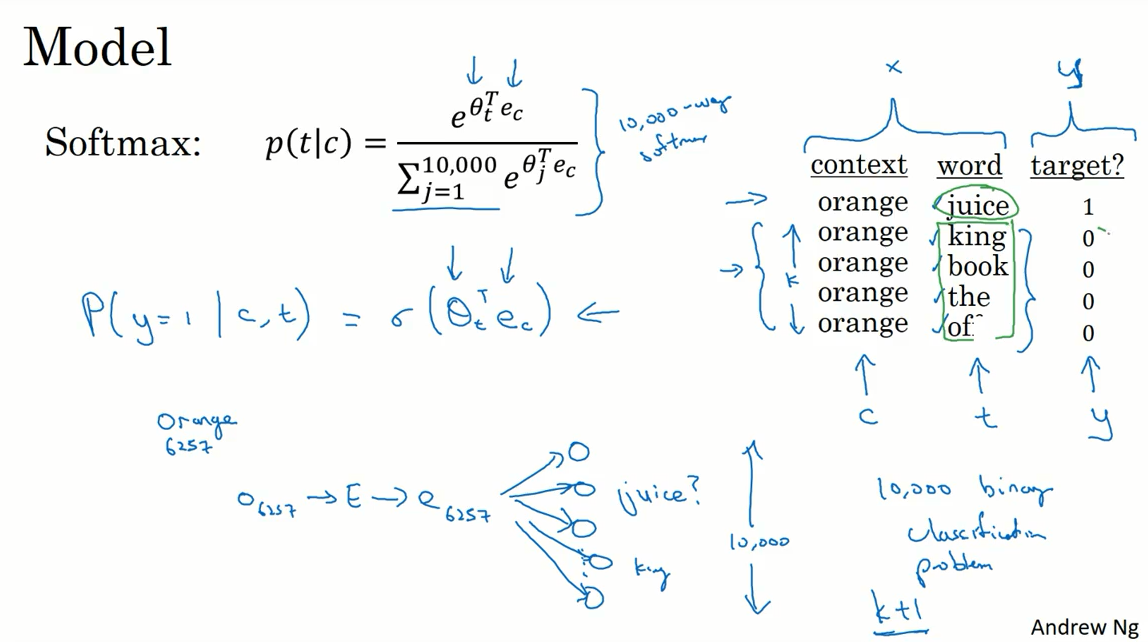 Model
Softmax: p(t|c) = e^{θ_t^T e_c} / ∑_{j=1}^{10,000} e^{θ_j^T e_c}
10,000-way
softmax
x
y
context word target?
orange juice 1
orange king 0
orange book 0
orange the 0
orange of 0
k
c
t
y
P(y=1 | c,t) = σ(θ_t^T e_c) ←
Orange
6257
O_6257 → E → e_6257
juice?
king
10,000
10,000 binary
classification
problem
k+1
Andrew Ng